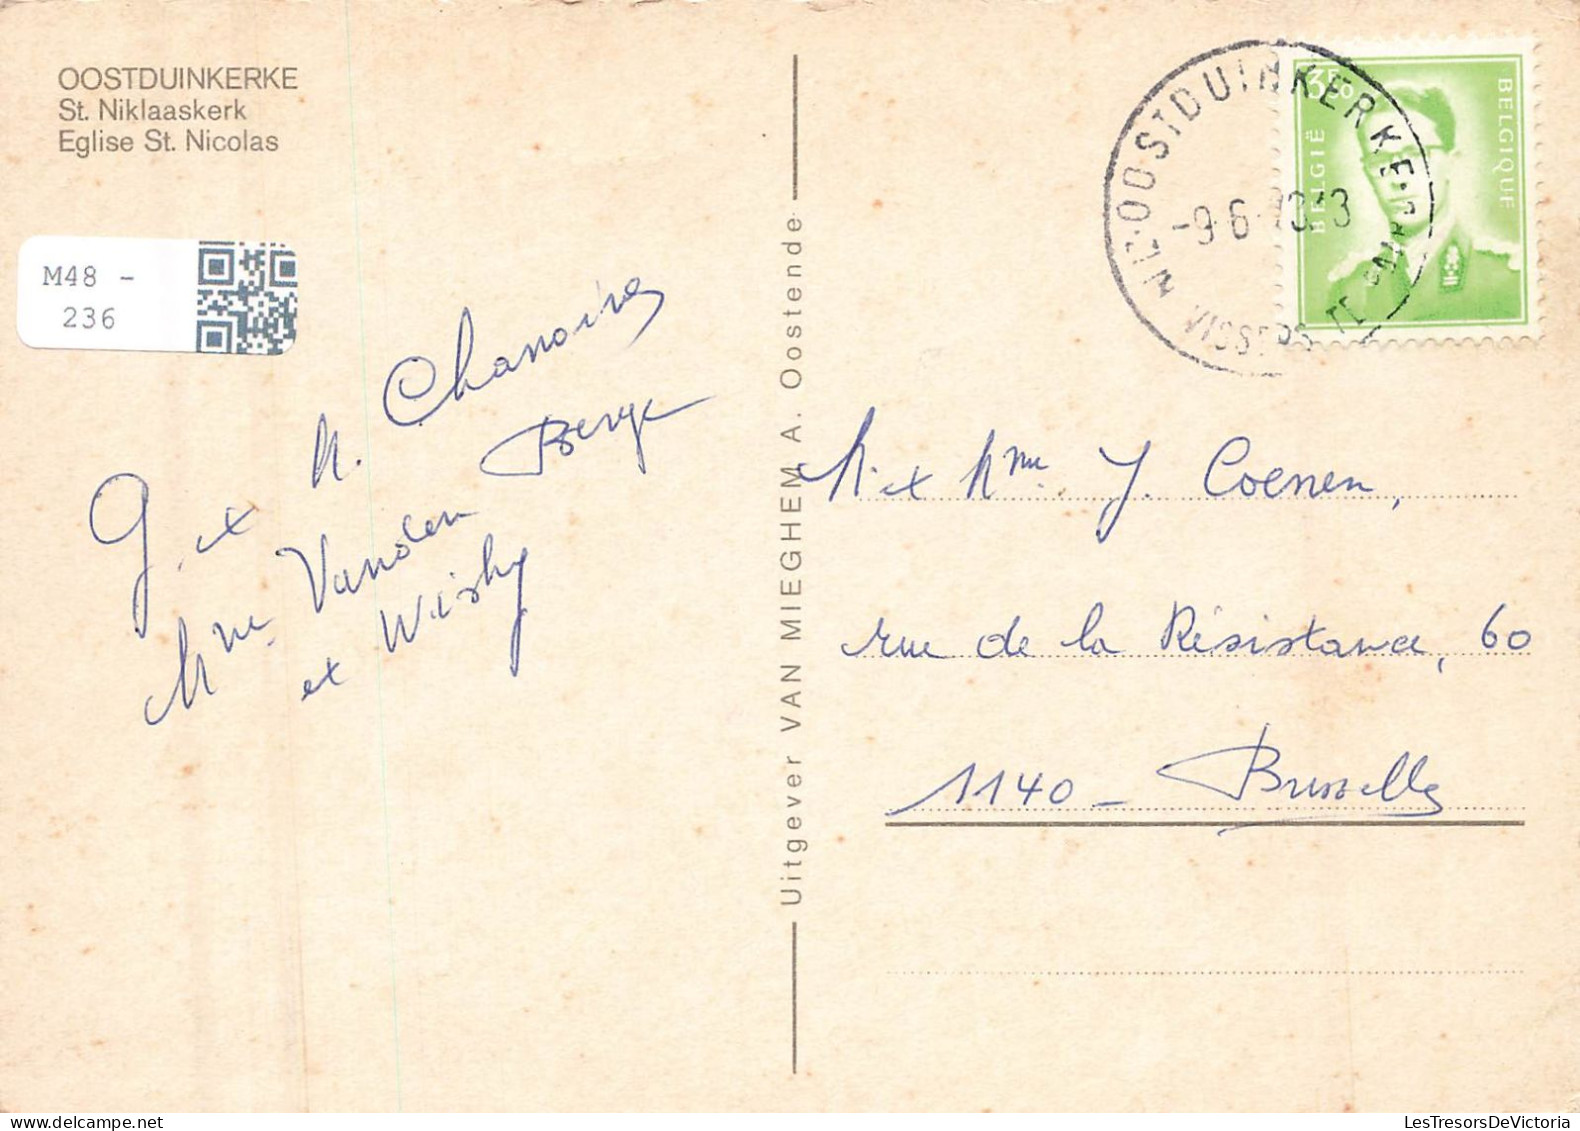 OOSTDUINKERKE
St. Niklaaskerk
Eglise St. Nicolas
M48 -
236
G. et M. Chanoines
Mme Vanden Berge
et Wishy
Uitgever VAN MIEGHEM A. Oostende
OOSTDUINKERKE
-9-6-
VISSERS
3F50
BELGIË
BELGIQUE
M. et Mme. J. Coenen,
rue de la Résistance, 60
1140 - Bruxelles
www.LesTresorsDeVictoria.com